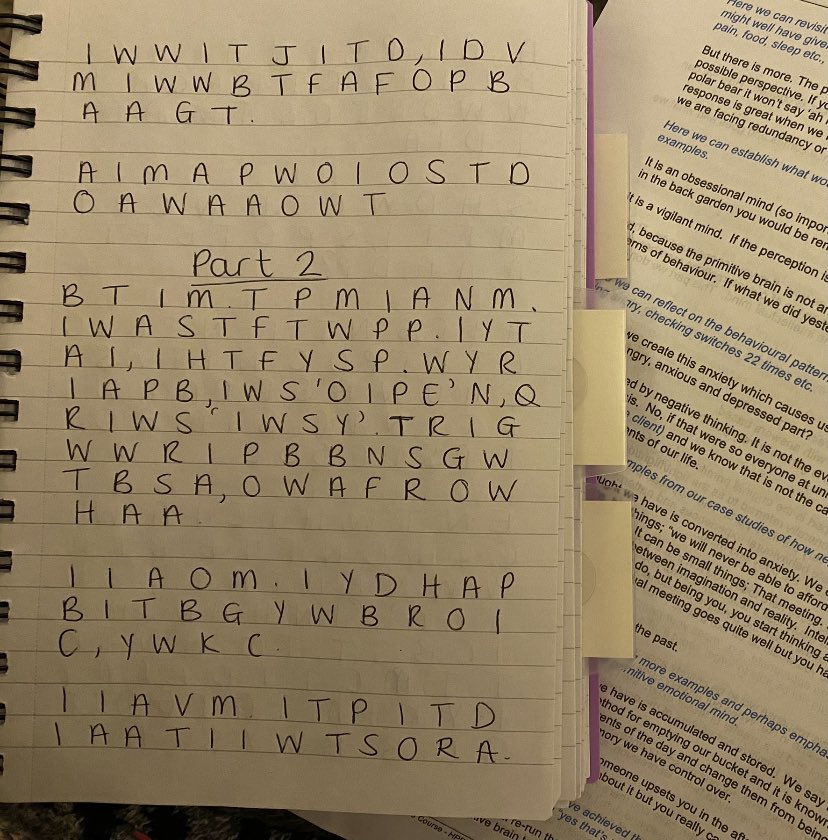 I W W I T J I T D, I D V
M I W W B T F A F O P B
A A G T.
A I M A P W O I O S T D
O A W A A O W T
Part 2
B T I M. T P M I A N M.
I W A S T F T W P P. I Y T
A I, I H T F Y S P. W Y R
I A P B, I W S 'O I P E' N, Q
R I W S 'I W S Y'. T R I G
W W R I P B B N S G W
T B S A, O W A F R O W
H A A.
I I A O M. I Y D H A P
B I T B G Y W B R O I
C, Y W K C.
I I A V M. I T P I T D
I A A T I I W T S O R A.
Here we can revisit
might well have give
pain, food, sleep etc,
But there is more. The p
possible perspective. If yo
polar bear it won't say 'ah
response is great when we
we are facing redundancy or
Here we can establish what wo
examples.
It is an obsessional mind (so impor
in the back garden you would be
It is a vigilant mind. If the perception is
because the primitive brain is not an
of behaviour. If what we did yeste
we can reflect on the behavioural pattern
checking switches 22 times etc.
we create this anxiety which causes us
angry, anxious and depressed part?
by negative thinking. It is not the ev
No, if that were so everyone at
client) and we know that is not the ca
of our life.
from our case studies of how ne
we have is converted into anxiety. We
things; "we will never be able to afford
It can be small things; That meeting.
between imagination and reality.
do, but being you, you start thinking a
meeting goes quite well but you ha
the past.
more examples and perhaps empha
emotional mind.
we have is accumulated and stored. We say
for emptying our bucket and it is known
of the day and change them from being
we have control over.
someone upsets you in the
about it but you really